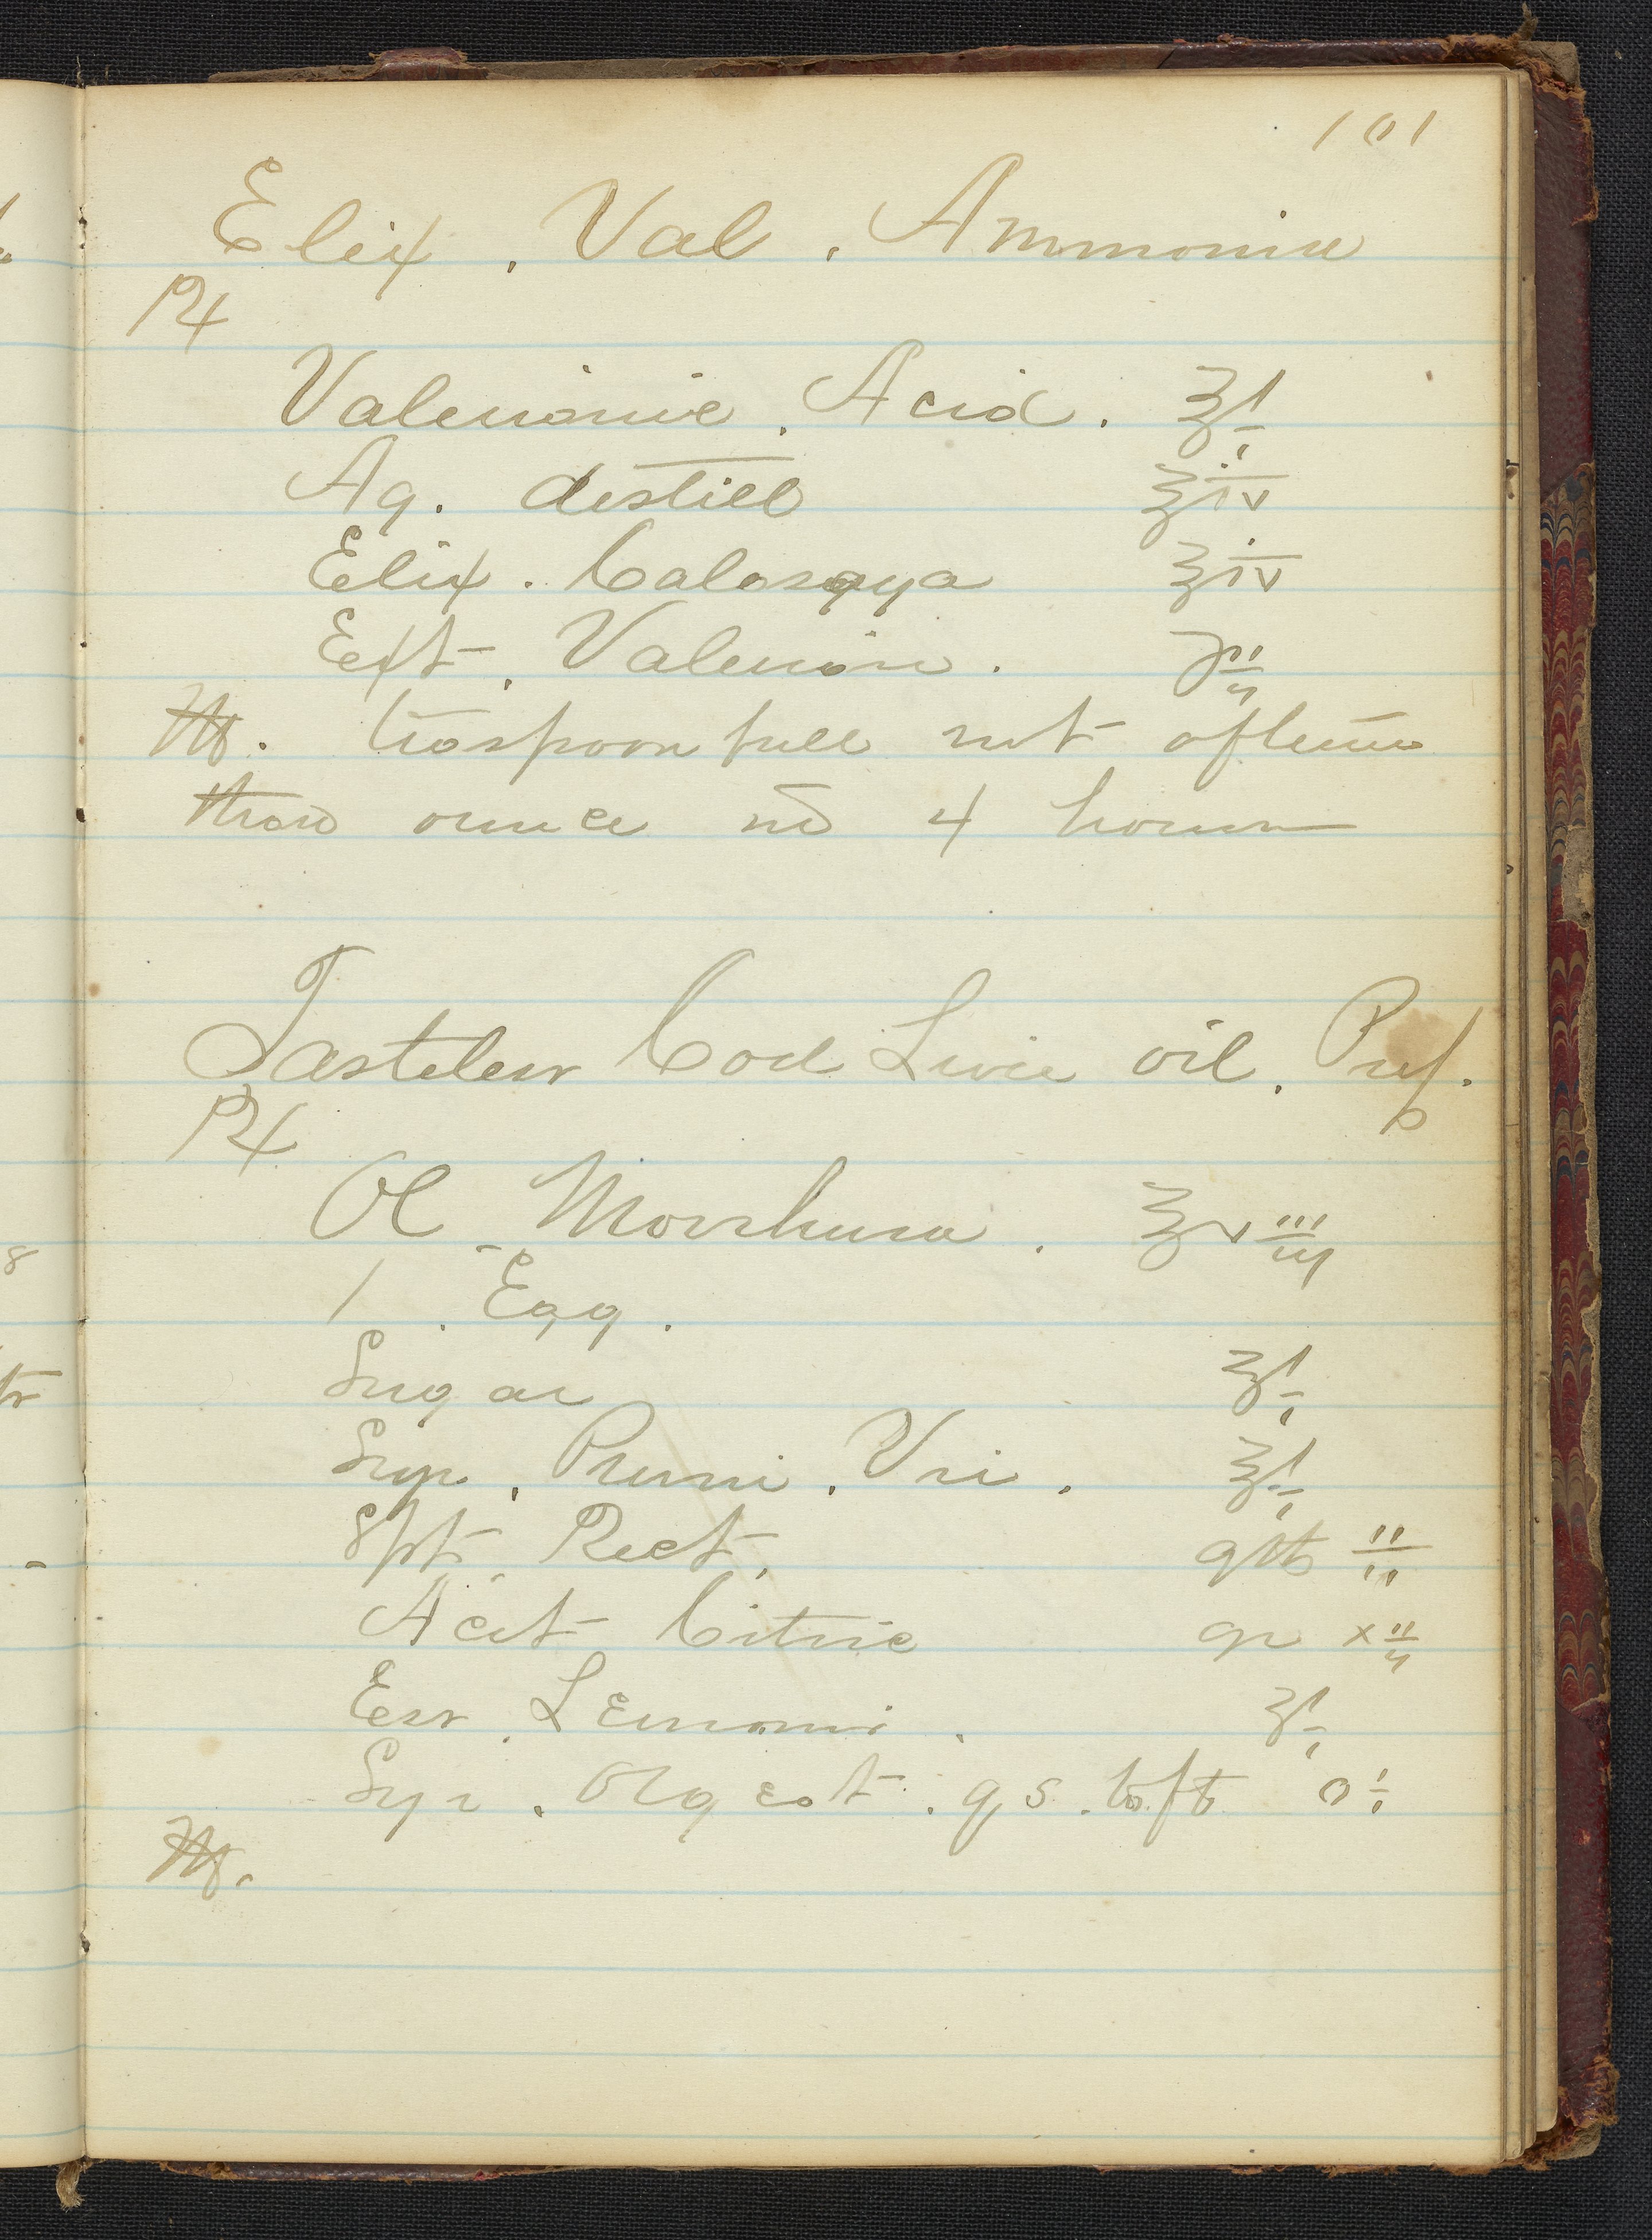 101
Elix. Val. Ammonia
℞
Valerianic. Acid. ʒi
Aq. destill ℥iv
Elix. Calasaya ℥iv
Ext. Valerian. ℈ii
M. teaspoon full not oftener
than once in 4 hours
Tasteless Cod Liver oil. Prep.
℞
Ol Morrhua. ℥viii
1. Egg.
Sugar ℥i
Syr. Pruni. Vri. ℥i
Spt. Rect. gtts ii
Acit Citric gr xii
Ess. Lemoni. ʒi
Syr. q s. to ft O i
M.